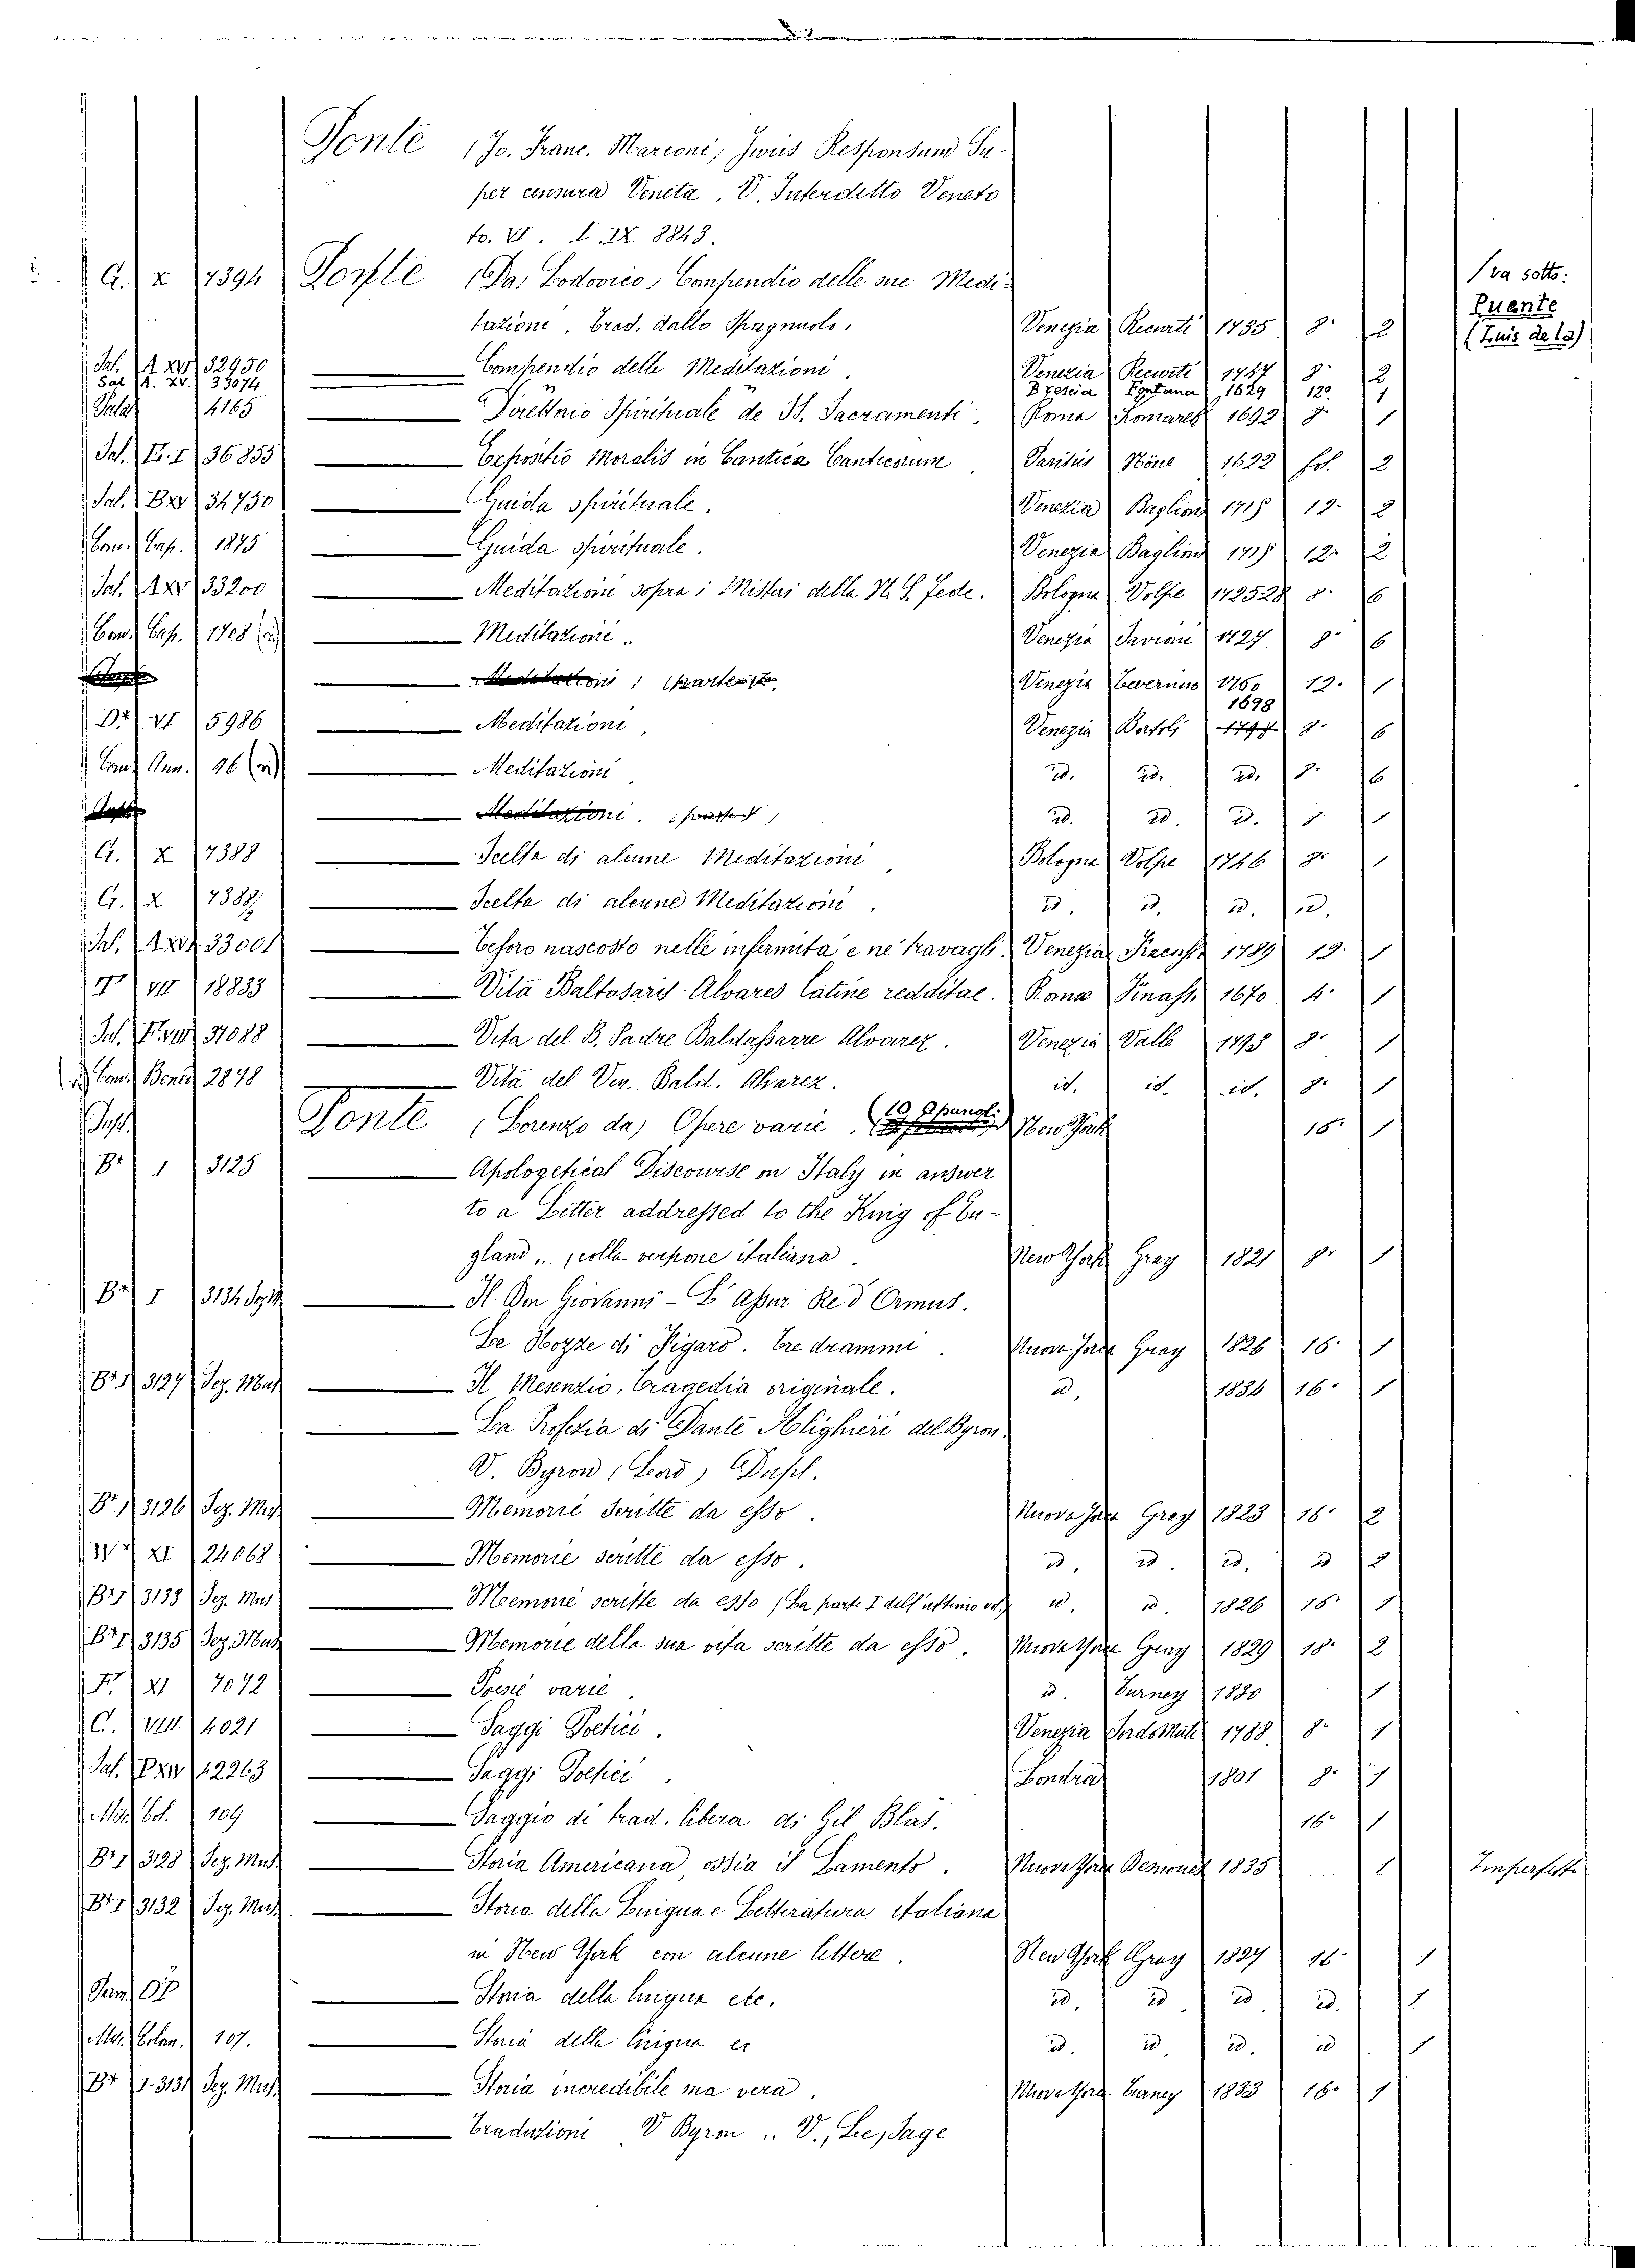 Ponte (Jo. Franc. Marconi) Juris Responsum Su-
per censura Veneta. V. Interditto Veneto
to. VI. I. IX 8843.
G. X 7394 Ponte (Da) Lodovico, Compendio delle sue Medi-
tazioni, trad. dallo Spagnuolo, Venezia Recurti 1735 8° 2
(va sotto:
Puente
(Luis de la)
Sal. A XV 32950 Compendio delle Meditazioni. Venezia Recurti 1747 8° 2
Sal. A. XV. 33074 Brescia Fontana 1629 12° 1
Palat 4165 Direttorio Spirituale de SS. Sacramenti. Roma 1692 8° 1
Sal. 36855 Expositio Moralis in Cantica Canticorum. Parisiis 1622 fol. 2
Sal. B XV 34750 Guida spirituale. Venezia Baglioni 12° 2
Conv. Cap. 1875 Guida spirituale. Venezia Baglioni 12° 2
Sal. A XV 33200 Meditazioni sopra i Misteri della N. S. Fede. Bologna Volpe 172528 8° 6
Conv. Cap. 1708 Meditazioni. Venezia Savioni 1727 8° 6
Venezia 1760 12° 1
Br. VI 5986 Meditazioni, Venezia Bortoli 1698 8° 6
Conv. Ann. 96 Meditazioni id. id. id. 8° 6
Meditazioni. id. id. id. 8° 1
G. X 7388 Scelta di alcune Meditazioni, Bologna Volpe 1746 8° 1
G. X 7387 Scelta di alcune Meditazioni. id. id. id. id.
Sal. A XV 33001 Tesoro nascosto nelle infermità e ne' travagli. Venezia 1789 12° 1
VII 18833 Vita Baltasaris Alvares Latine redditae. Roma 1670 4° 1
Sal. 37088 Vita del B. Padre Baldassarre Alvarez. Venezia Valle 8° 1
Conv. 2878 Vita del Ven. Bald. Alvarez. id. id. id. 8° 1
Ponte (Lorenzo da) Opere varie. (10 Opuscoli) New York 16° 1
Br. 1 3125 Apologetical Discourse on Italy in answer
to a Letter addressed to the King of En-
gland... (colla versione italiana. New York Gray 1821 8° 1
Br. I 3134 Il Don Giovanni - L'Assur Re d'Ormus.
Le Nozze di Figaro. Tre drammi. Nuova Jorca Gray 1826 16° 1
Br. I 3127 Sez. Mus. Il Mesenzio, Tragedia originale. id. 1834 16° 1
La Profezia di Dante Alighieri del Byron.
V. Byron (Lord)
Br. I 3126 Sez. Mus. Memorie Scritte da esso. Nuova Jorca Gray 1823 16° 2
XI 24068 Memorie scritte da esso. id. id. id. id 2
Br. I 3133 Sez. Mus Memorie scritte da esso (La parte I dell'ultimo vol.) id. id. 1826 16° 1
Br. I 3135 Sez. Mus. Memorie della sua vita scritte da esso. Nuova York Gray 1829 18° 2
XI 7072 Poesie varie. id. Turney 1830 1
C. VIII 4021 Saggi Poetici. Venezia 1788 8° 1
Sal. 12263 Saggi Poetici. Londra 1801 8° 1
Misc. Col. 109 Saggio di trad. libera di Gil Blas. 16° 1
Br. I 3128 Sez. Mus. Storia Americana, ossia il Lamento. Nuova York 1835 1 Imperfetto
Br. I 3132 Sez. Mus. Storia della Lingua e Letteratura italiana
in New York con alcune lettere. New York Gray 1827 16° 1
Storia della lingua etc. id. id id id. 1
107. Storia della lingua ec id. id id. id 1
Br I. 3131 Sez. Mus. Storia incredibile ma vera. Nuova York Turney 1833 16° 1
Traduzioni V Byron .. V., Le Sage